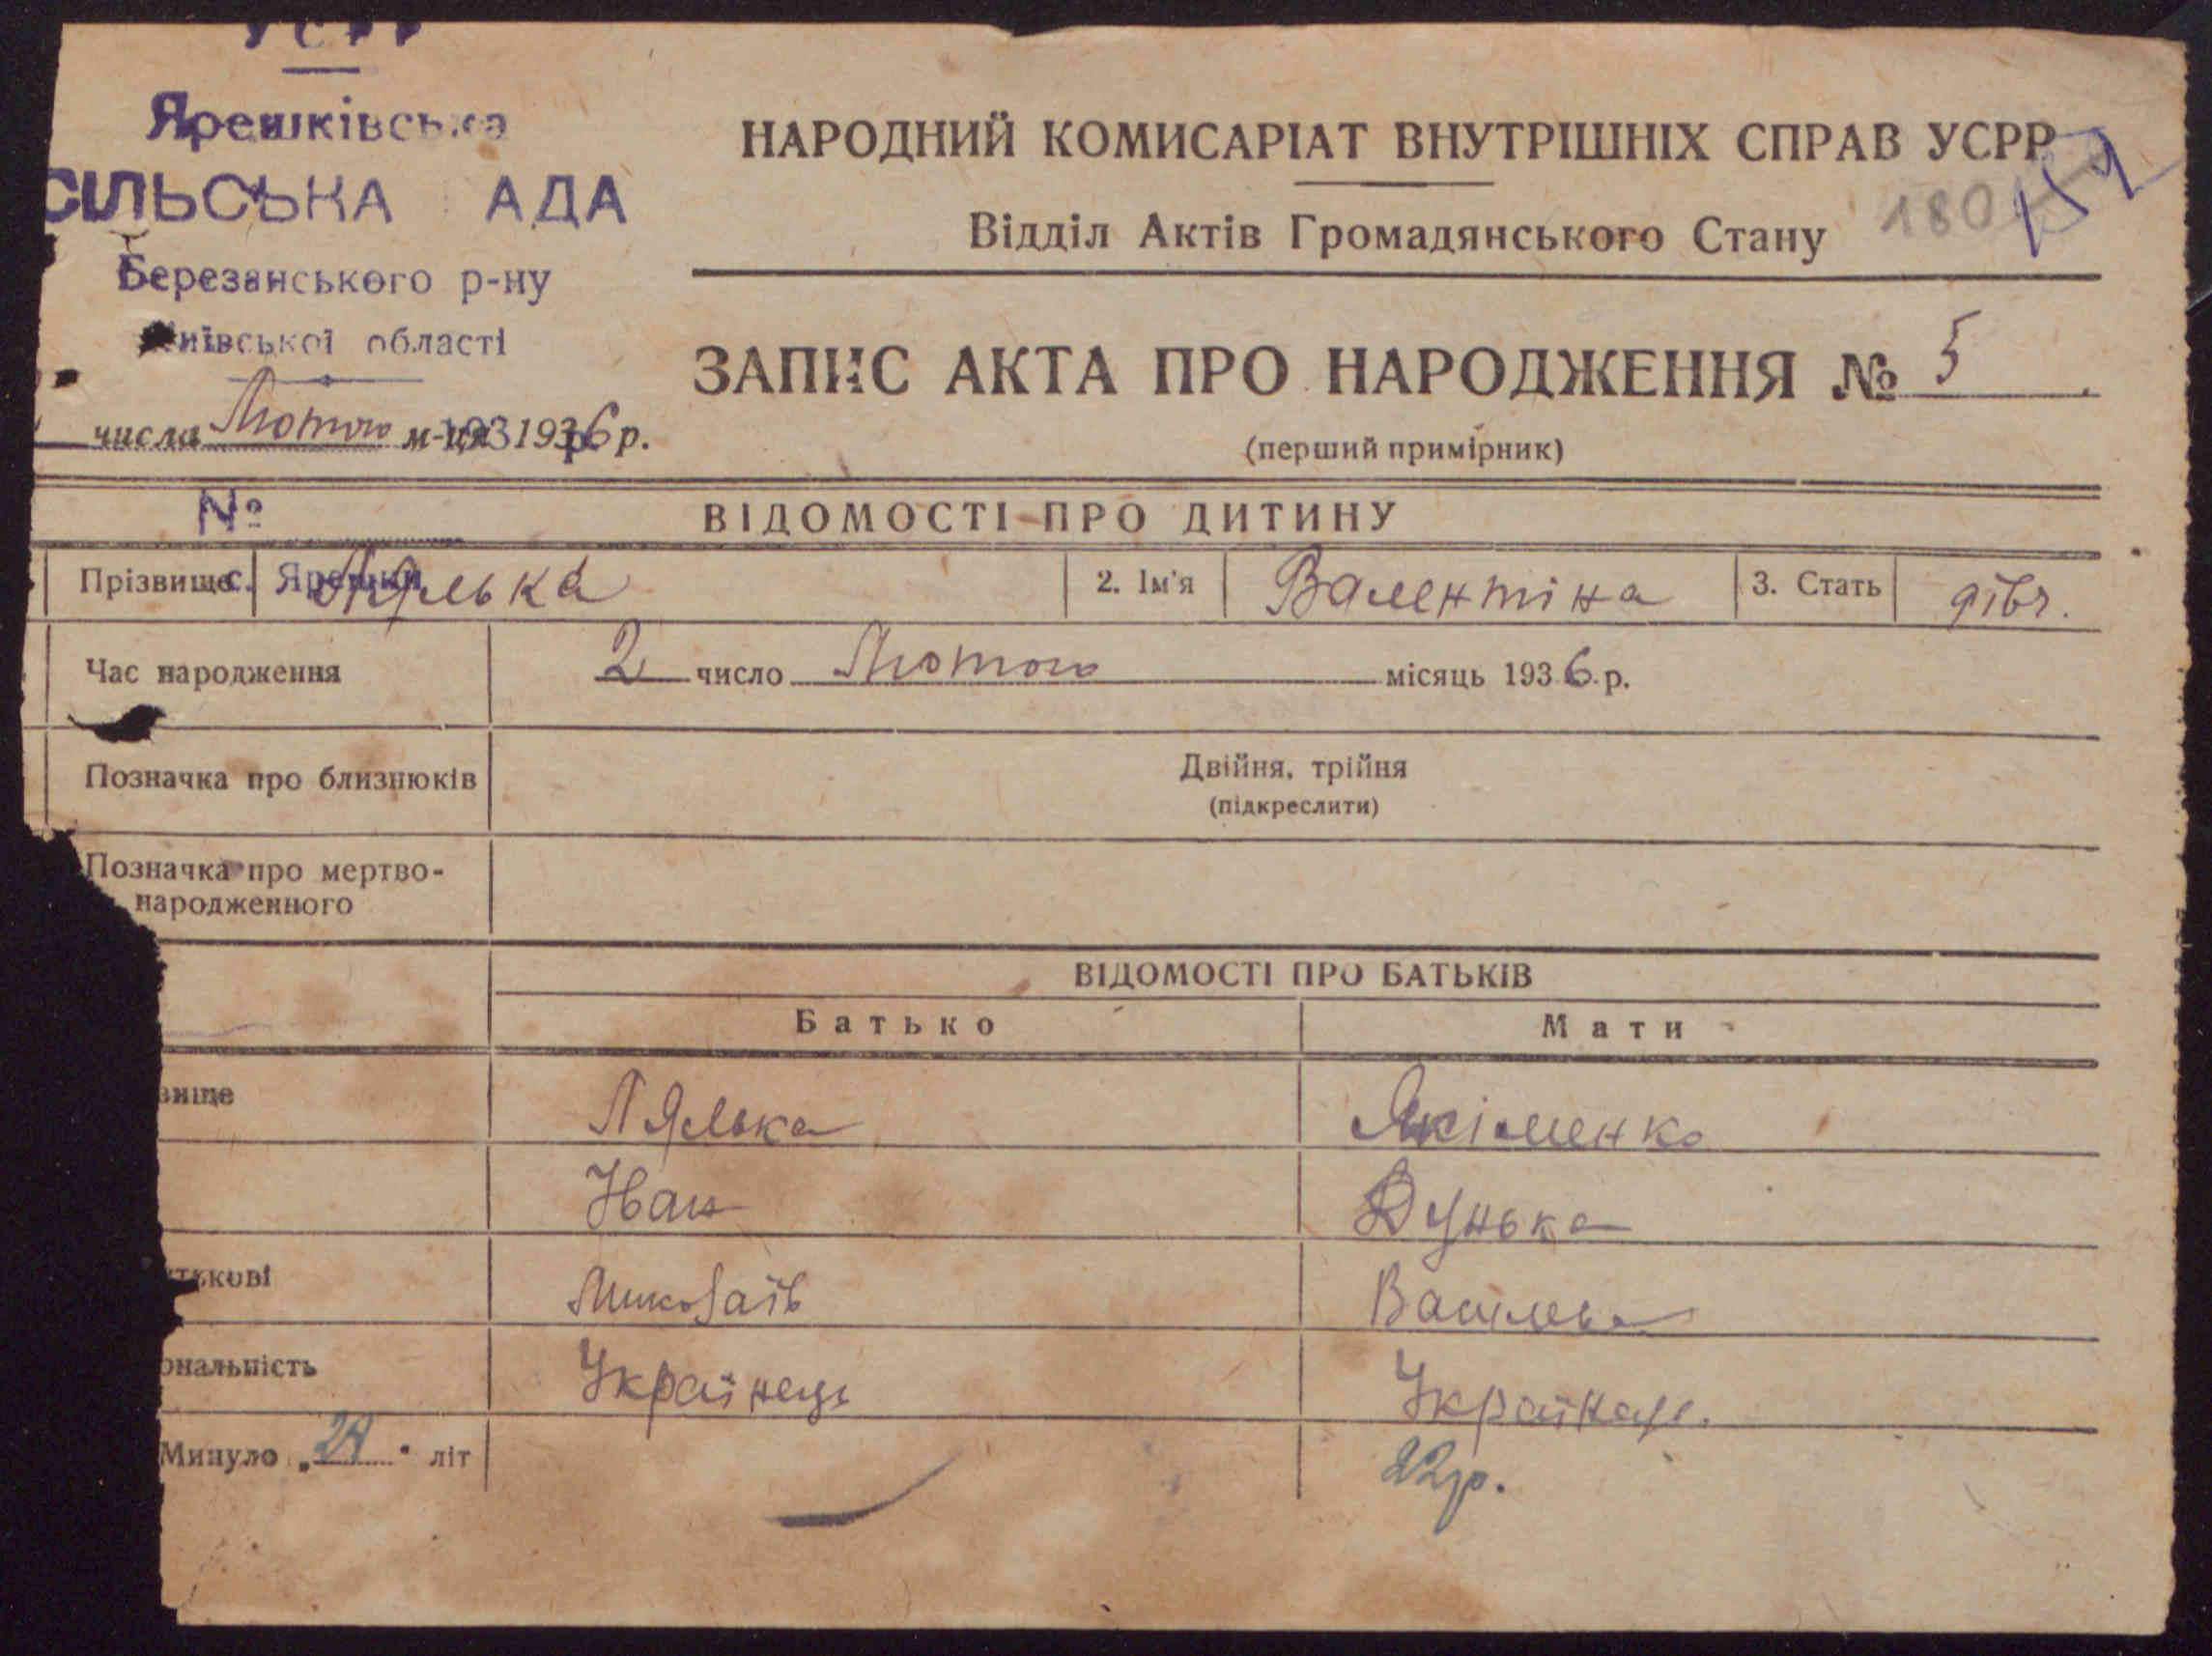 УСРР
Ярешківська
СІЛЬСЬКА АДА
Березанського р-ну
Київської області
числа Лютого м-ця 1936 р.
№
с. Ярешки
НАРОДНИЙ КОМИСАРІАТ ВНУТРІШНІХ СПРАВ УСРР
180
Відділ Актів Громадянського Стану
ЗАПИС АКТА ПРО НАРОДЖЕННЯ № 5
(перший примірник)
ВІДОМОСТІ ПРО ДИТИНУ
Прізвище Лялька 2. Ім'я Валентіна 3. Стать дівч.
Час народження 2 число Лютого місяць 1936 р.
Позначка про близнюків Двійня, трійня
(підкреслити)
Позначка про мертво-
народженного
ВІДОМОСТІ ПРО БАТЬКІВ
Батько Мати
звище Лялька Якіменко
Іван Дунька
атькові Миколаїв
ональність Українець Українець.
Минуло „24" літ 22 р.